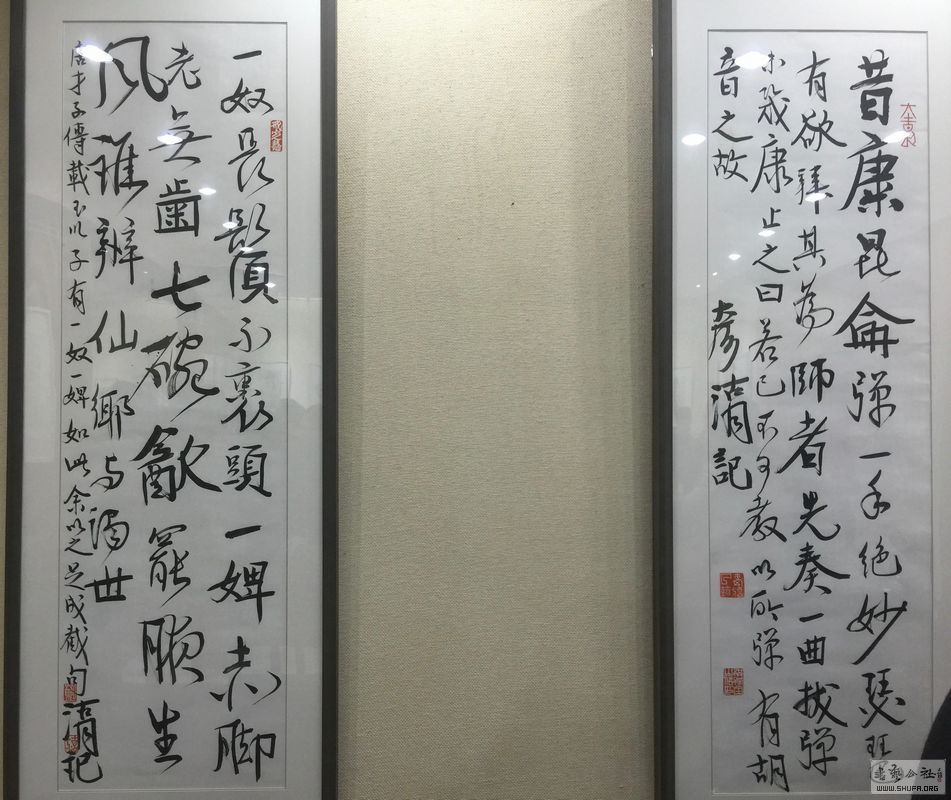 昔康昆侖弹一手絕妙
有欲拜其為師者先奏一曲拔弹
未幾康止之曰若已不可教以所弹有胡
音之故 彥清記
一奴長鬚不裹頭一婢赤腳
老無齒七碗㱃罷腋生
風誰辨仙鄉与濁世
唐才子傳載玉川子有一奴一婢如此余以之足成截句清記
書藝公社
WWW.SHUFA.ORG